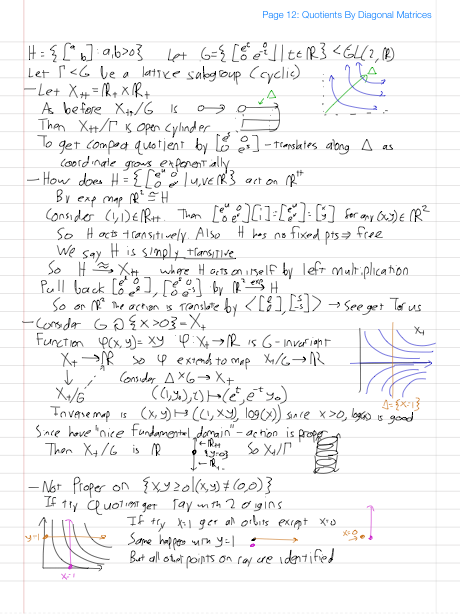 Page 12: Quotients By Diagonal Matrices
H = {[a b] : a,b>0} Let G={[e^t 0 0 e^-t] | t∈ℝ} < GL(2,ℝ)
Let Γ<G be a lattice subgroup (cyclic)
- Let X++ = ℝ+ × ℝ+
Δ
As before X++/G is
Δ
Then X++/Γ is open cylinder
To get compact quotient by [e^s 0 0 e^s] - translates along Δ as
coordinate grows exponentially
- How does H = {[e^u 0 0 e^v] | u,v∈ℝ} act on ℝ++
By exp map ℝ² ≅ H
Consider (1,1)∈ℝ++. Then [e^u 0 0 e^v][1 1] = [e^u e^v] = [x y] for any (x,y)∈ℝ²
So H acts transitively. Also H has no fixed pts ⇒ free
We say H is simply transitive
So H ≅ X++ where H acts on itself by left multiplication
Pull back [e^t 0 0 e^-t], [e^s 0 0 e^s] by ℝ² exp→ H
So on ℝ² the action is translate by → See get Torus
- Consider G ↻ {x>0} = X+
X+
Function φ(x,y) = xy φ: X+→ℝ is G-invariant
X+ → ℝ So φ extend to map X+/G → ℝ
↓ Consider Δ×G → X+
X+/G ((1,y₀),t) ↦ (e^t, e^-t y₀)
Δ={x=1}
Inverse map is (x,y) ↦ ((1,xy), log(x)) since x>0, log(x) is good
Since have "nice fundamental domain" - action is proper
Then X+/G is ℝ {y=0} So X+/Γ
- Not Proper on {x,y≥0 | (x,y)≠(0,0)}
If try quotient get ray with 2 origins
If try x=1 get all orbits except x=0
y=1
Same happens with y=1
x=0
But all other points on ray are identified
x=1